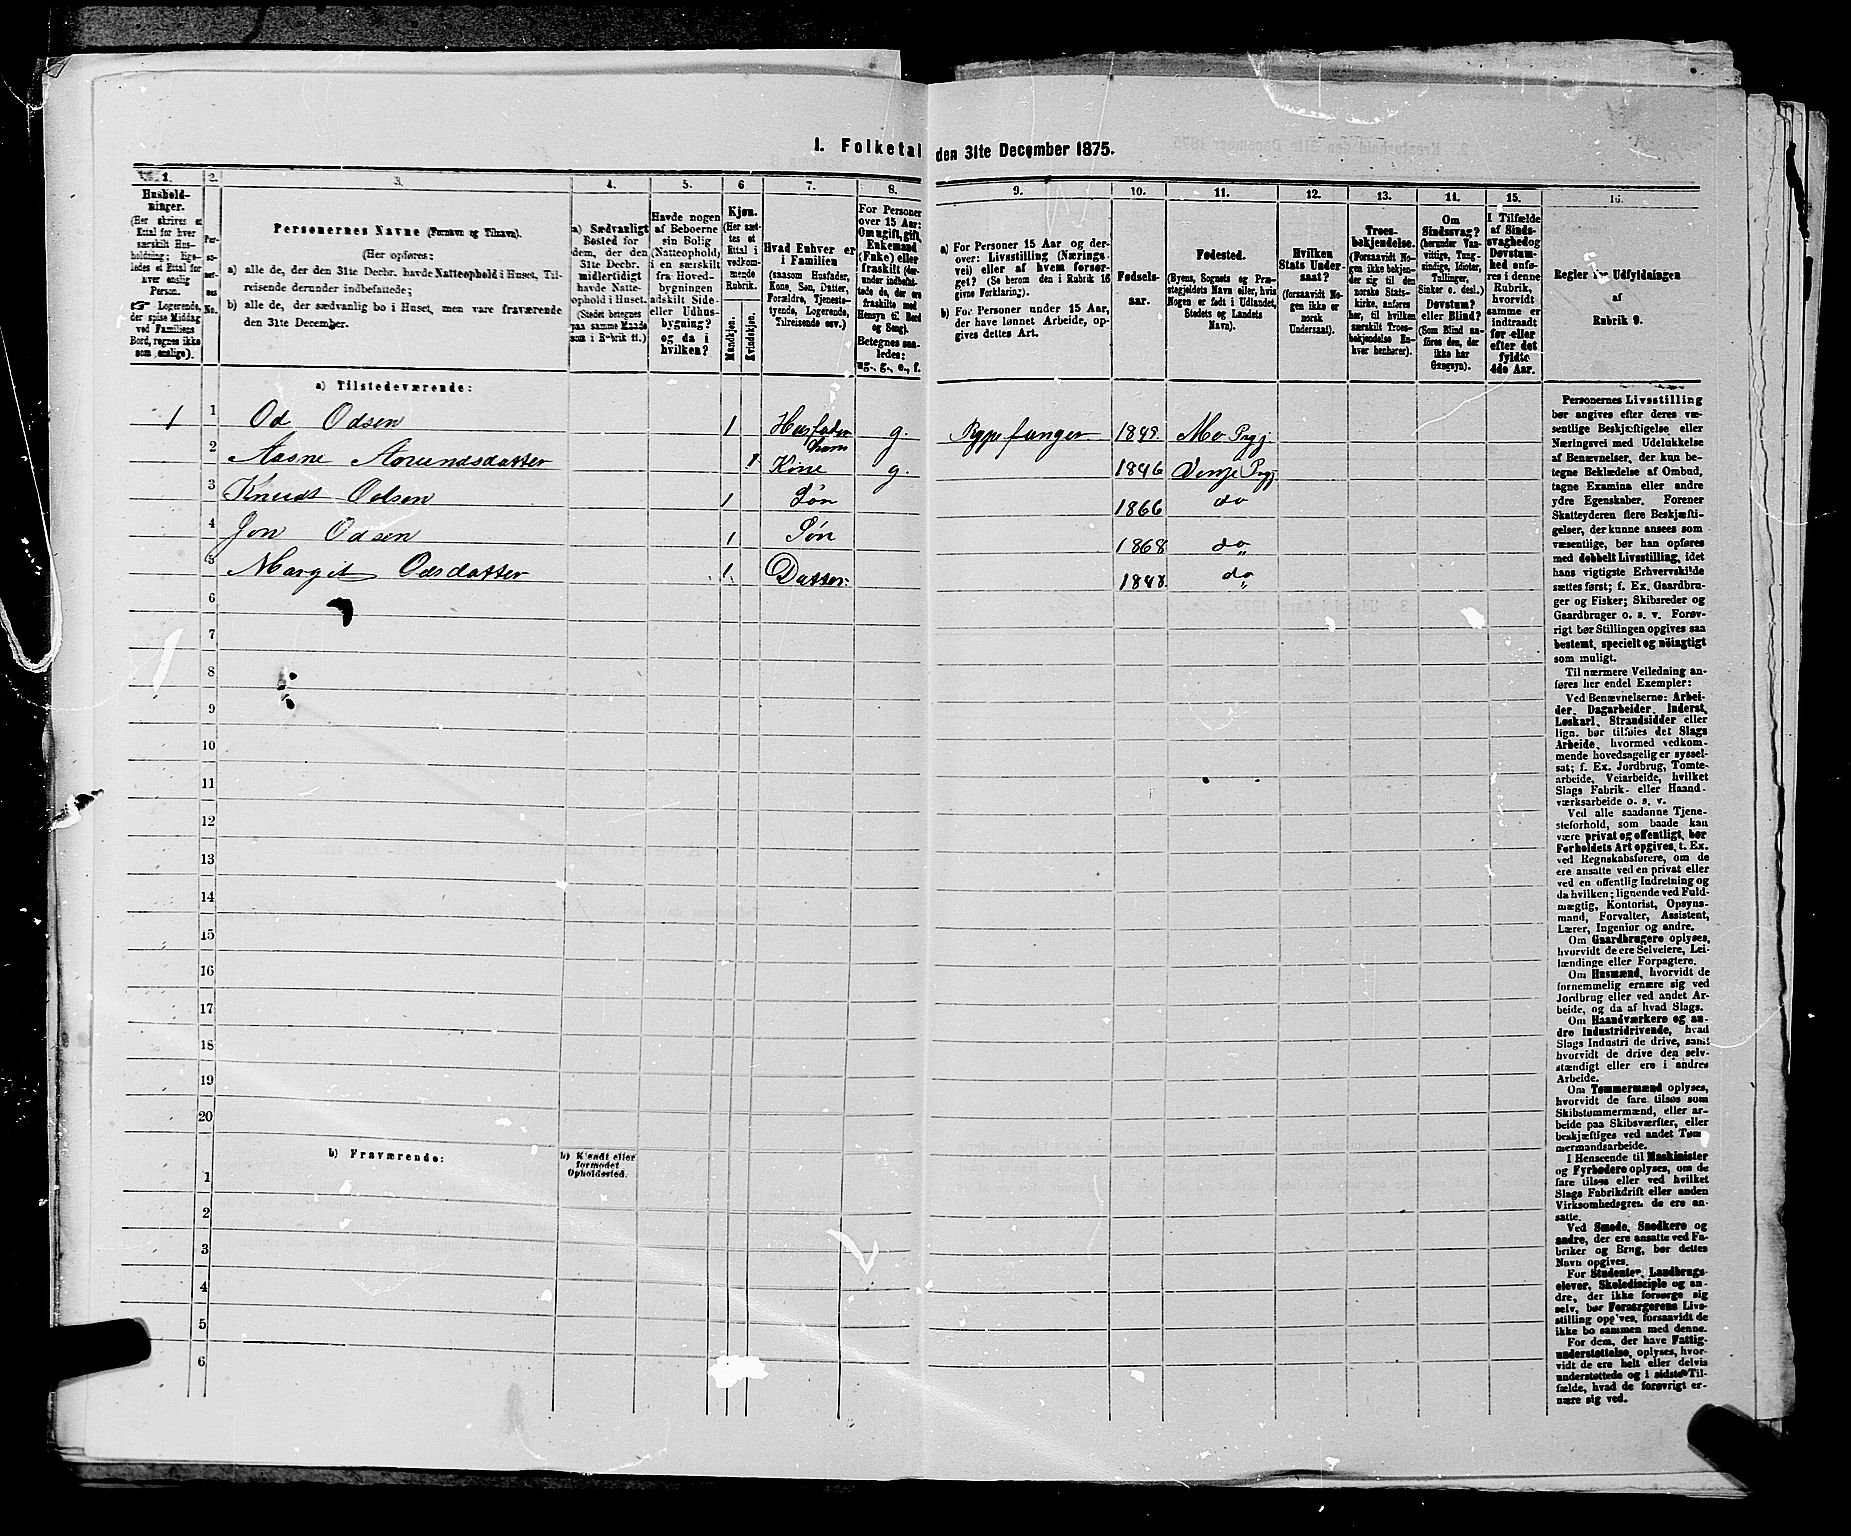 1. Folketal den 31te December 1875.
1. 2. 3. 4. 5. 6 7. 8. 9. 10. 11. 12. 13. 14. 15. 16.
Hushold-
ninger.
(Her skrives et
Ettal for hver
særskilt Hus-
holdning; lige-
ledes et Ettal for
hver enslig
Person.
Logerende,
der spise Middag
ved Familiens
Bord, regnes ikke
som enslige).
Per-
so-
ner-
nes
No.
Personernes Navne (Fornavn og Tilnavn).
(Her opføres:
a) alle de, der den 31te Decbr. havde Natteophold i Huset, Til-
reisende derunder indbefattede;
b) alle de, der sædvanlig bo i Huset, men vare fraværende
den 31te December.
a) Sædvanligt
Bosted for
dem, der den
31te Decbr.
midlertidigt
havde Natte-
ophold i Huset.
(Stedet betegnes
paa samme Maade
som i Rubrik 11.)
Havde nogen
af Beboerne
sin Bolig
(Natteophold)
i en særskilt
fra Hoved-
bygningen
adskilt Side-
eller Udhus-
bygning?
og da i
hvilken?
Kjøn.
(Her sæt-
tes et
Ettal i
vedkom-
mende
Rubrik.
Mandkjøn.
Kvindekjøn.
Hvad Enhver er
i Familien
(saasom Husfader,
Kone, Søn, Datter,
Forældre, Tjeneste-
tyende, Logerende,
Tilreisende osv.)
For Personer
over 15 Aar:
Om ugift, gift,
Enkemand
(Enke) eller
fraskilt (der-
under indbefat-
tede de, der ere
fraskilte med
Hensyn til Bord
og Seng).
Betegnes saa-
ledes:
ug., g., e., f.
a) For Personer 15 Aar og der-
over: Livsstilling (Nærings-
vei) eller af hvem forsør-
get? (Se herom den i Rubrik 16
givne Forklaring).
b) For Personer under 15 Aar,
der have lønnet Arbeide, op-
gives dettes Art.
Fødsels-
aar.
Fødested.
(Byens, Sognets og Præ-
stegjeldets Navn eller, hvis
Nogen er født i Udlandet,
Stedets og Landets
Navn).
Hvilken
Stats Under-
saat?
(forsaavidt No-
gen ikke er
norsk
Undersaat).
Troes-
bekjendelse.
(Forsaavidt No-
gen ikke bekjen-
der sig til den
norske Stats-
kirke, anføres
her, til hvilken
særskilt Troes-
bekjendelse En-
hver henhører).
Om
Sindssvag?
(herunder Van-
vittige, Tung-
sindige, Idioter,
Tullinger,
Sinker o. desl.)
Døvstum?
eller Blind?
(Som Blind an-
føres den, der
ikke har
Gangsyn).
I Tilfælde
af Sinds-
svaghed og
Døvstum-
hed anfø-
res i denne
Rubrik,
hvorvidt
samme er
indtraadt
før eller
efter det
fyldte
4de Aar.
Regler for Udfyldningen
af
Rubrik 9.
a) Tilstedeværende:
1 1 Od Odsen 1 Husfader g. Rypefanger 1849. Mo Prgj
2 Aasne Amundsdatter 1 hans Kone g. 1846 Vinje Prgj
3 Knudt Odsen 1 Søn 1866 do
4 Jon Odsen 1 Søn 1868 do „
5 Margit Odsdatter 1. Datter: do „
6
7
8
9
10
11
12
13
14
15
16
17
18
19
20
b) Fraværende: b) Kjendt eller
formodet
Opholdssted.
1
2
3
4
5
6
Personernes Livsstilling
bør angives efter deres væ-
sentlige Beskjæftigelse eller
Næringsvei med Udelukkelse
af Benævnelser, der kun be-
tegne Beklædelse af Ombud,
tagne Examina eller andre
ydre Egenskaber. Forener
Skatteyderen flere Beskjæfti-
gelser, der kunne ansees som
væsentlige, bør han opføres
med dobbelt Livsstilling, idet
hans vigtigste Erhvervskilde
sættes først; f. Ex. Gaardbru-
ger og Fisker; Skibsreder og
Gaardbruger o. s. v. Forøv-
rigt bør Stillingen opgives saa
bestemt, specielt og nøiagtigt
som muligt.
Til nærmere Veiledning an-
føres her endel Exempler:
Ved Benævnelserne: Arbei-
der, Dagarbeider, Inderst,
Løskarl, Strandsidder eller
lign. bør tilføies det Slags
Arbeide, hvormed vedkom-
mende hovedsagelig er syssel-
sat; f. Ex. Jordbrug, Tomte-
arbeide, Veiarbeide, hvilket
Slags Fabrik- eller Haand-
værksarbeide o. s. v.
Ved alle saadanne Tjene-
steforhold, som baade kan
være privat og offentligt, bør
Forholdets Art opgives, t. Ex.
ved Regnskabsførere, om de
ere ansatte ved en privat eller
ved en offentlig Indretning og
da hvilken; lignende ved Fuld-
mægtig, Kontorist, Opsyns-
mand, Forvalter, Assistent,
Lærer, Ingeniør og andre.
Om Gaardbrugere oplyses,
hvorvidt de ere Selveiere, Lei-
lændinge eller Forpagtere.
Om Husmænd, hvorvidt de
fornemmelig ernære sig ved
Jordbrug eller ved andet Ar-
beide, og da af hvad Slags.
Om Haandværkere og an-
dre Industridrivende, hvad
Slags Industri de drive, samt
hvorvidt de drive den selv-
stændigt eller ere i andres
Arbeide.
Om Tømmermænd oplyses,
hvorvidt de fare tilsøs som
Skibstømmermænd, eller ar-
beide paa Skibsværfter, eller
beskjæftiges ved andet Tøm-
mermandsarbeide.
I Henseende til Maskinister
og Fyrbødere oplyses, om de
fare tilsøs eller ved hvilket
Slags Fabrikdrift eller anden
Virksomhedsgren de ere an-
satte.
Ved Smede, Snedkere og
andre, der ere ansatte ved Fa-
briker og Brug, bør dettes
Navn opgives.
For Studenter, Landbrugs-
elever, Skoledisciple og an-
dre, der ikke forsørge sig
selv, bør Forsørgerens Livs-
stilling opgives, forsaavidt de
ikke bo sammen med denne.
For dem, der have Fattig-
understøttelse, oplyses, hvor-
vidt de ere helt eller delvis
understøttede og i sidste Til-
fælde, hvad de forøvrigt er-
nære sig ved.